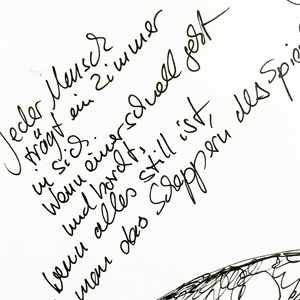 Jeder Mensch
trägt ein Zimmer
in sich.
Wenn einer schnell geht
und horcht,
wenn alles still ist,
man das Scheppern des